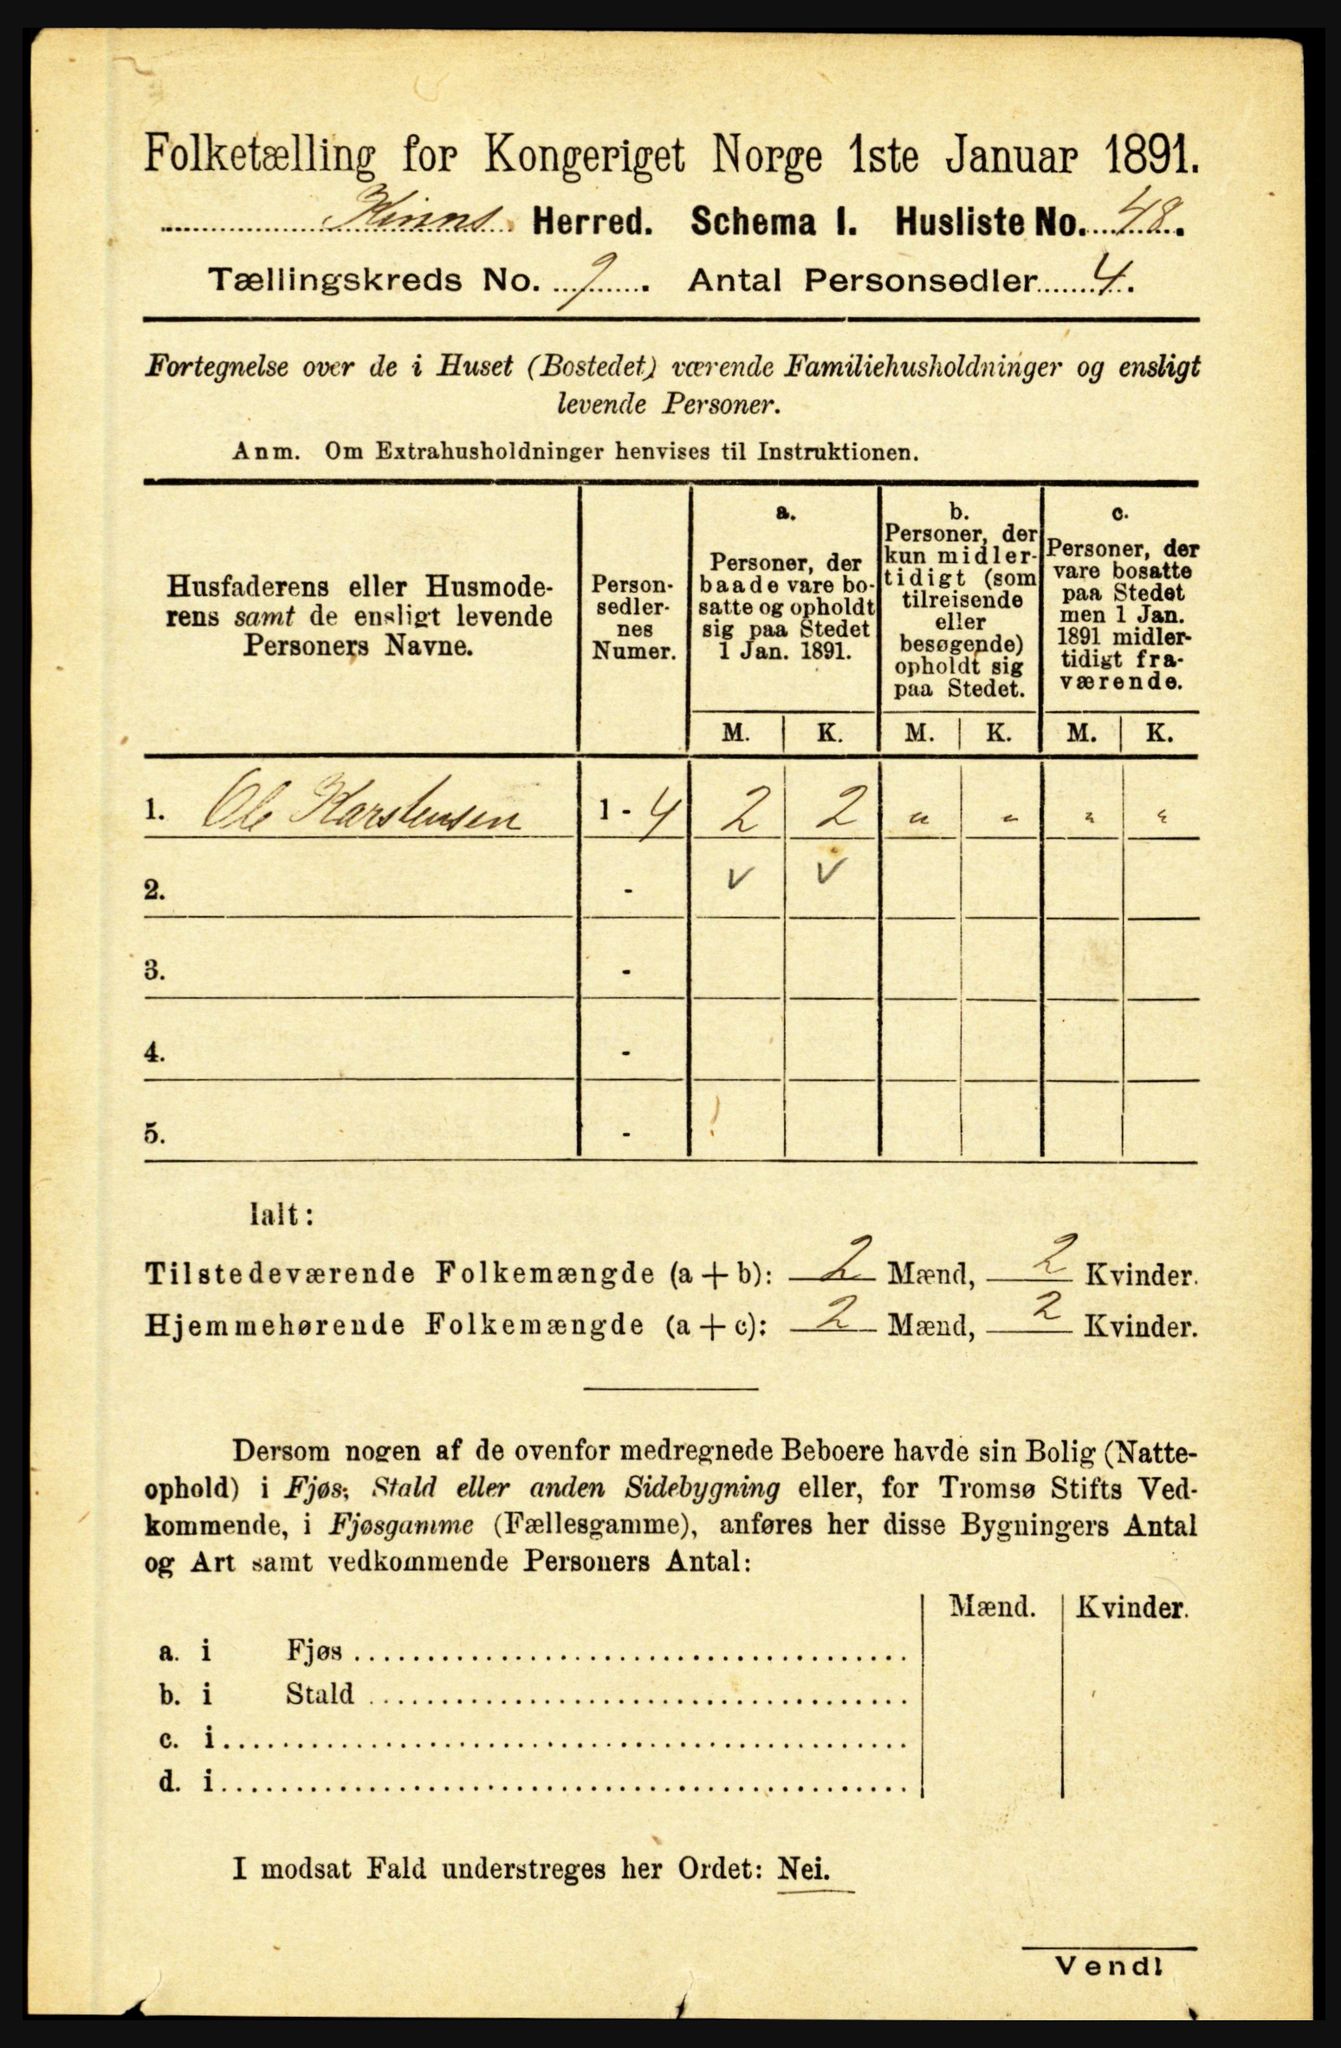 Folketælling for Kongeriget Norge 1ste Januar 1891.
Kinns Herred. Schema I. Husliste No. 48.
Tællingskreds No. 9. Antal Personsedler 4.
Fortegnelse over de i Huset (Bostedet) værende Familiehusholdninger og ensligt
levende Personer.
Anm. Om Extrahusholdninger henvises til Instruktionen.
Husfaderens eller Husmode-
rens samt de ensligt levende
Personers Navne.
Person-
sedler-
nes
Numer.
a.
Personer, der
baade vare bo-
satte og opholdt
sig paa Stedet
1 Jan. 1891.
b.
Personer, der
kun midler-
tidigt (som
tilreisende
eller
besøgende)
opholdt sig
paa Stedet.
c.
Personer, der
vare bosatte
paa Stedet
men 1 Jan.
1891 midler-
tidigt fra-
værende.
M. K. M. K. M. K.
1. Ole Karstensen 1 - 4 2 2 „ „ „ „
2. - v v
3. -
4. -
5. -
Ialt:
Tilstedeværende Folkemængde (a + b): 2 Mænd, 2 Kvinder.
Hjemmehørende Folkemængde (a + c): 2 Mænd, 2 Kvinder.
Dersom nogen af de ovenfor medregnede Beboere havde sin Bolig (Natte-
ophold) i Fjøs, Stald eller anden Sidebygning eller, for Tromsø Stifts Ved-
kommende, i Fjøsgamme (Fællesgamme), anføres her disse Bygningers Antal
og Art samt vedkommende Personers Antal:
Mænd. Kvinder.
a. i Fjøs
b. i Stald
c. i
d. i
I modsat Fald understreges her Ordet: Nei.
Vend!